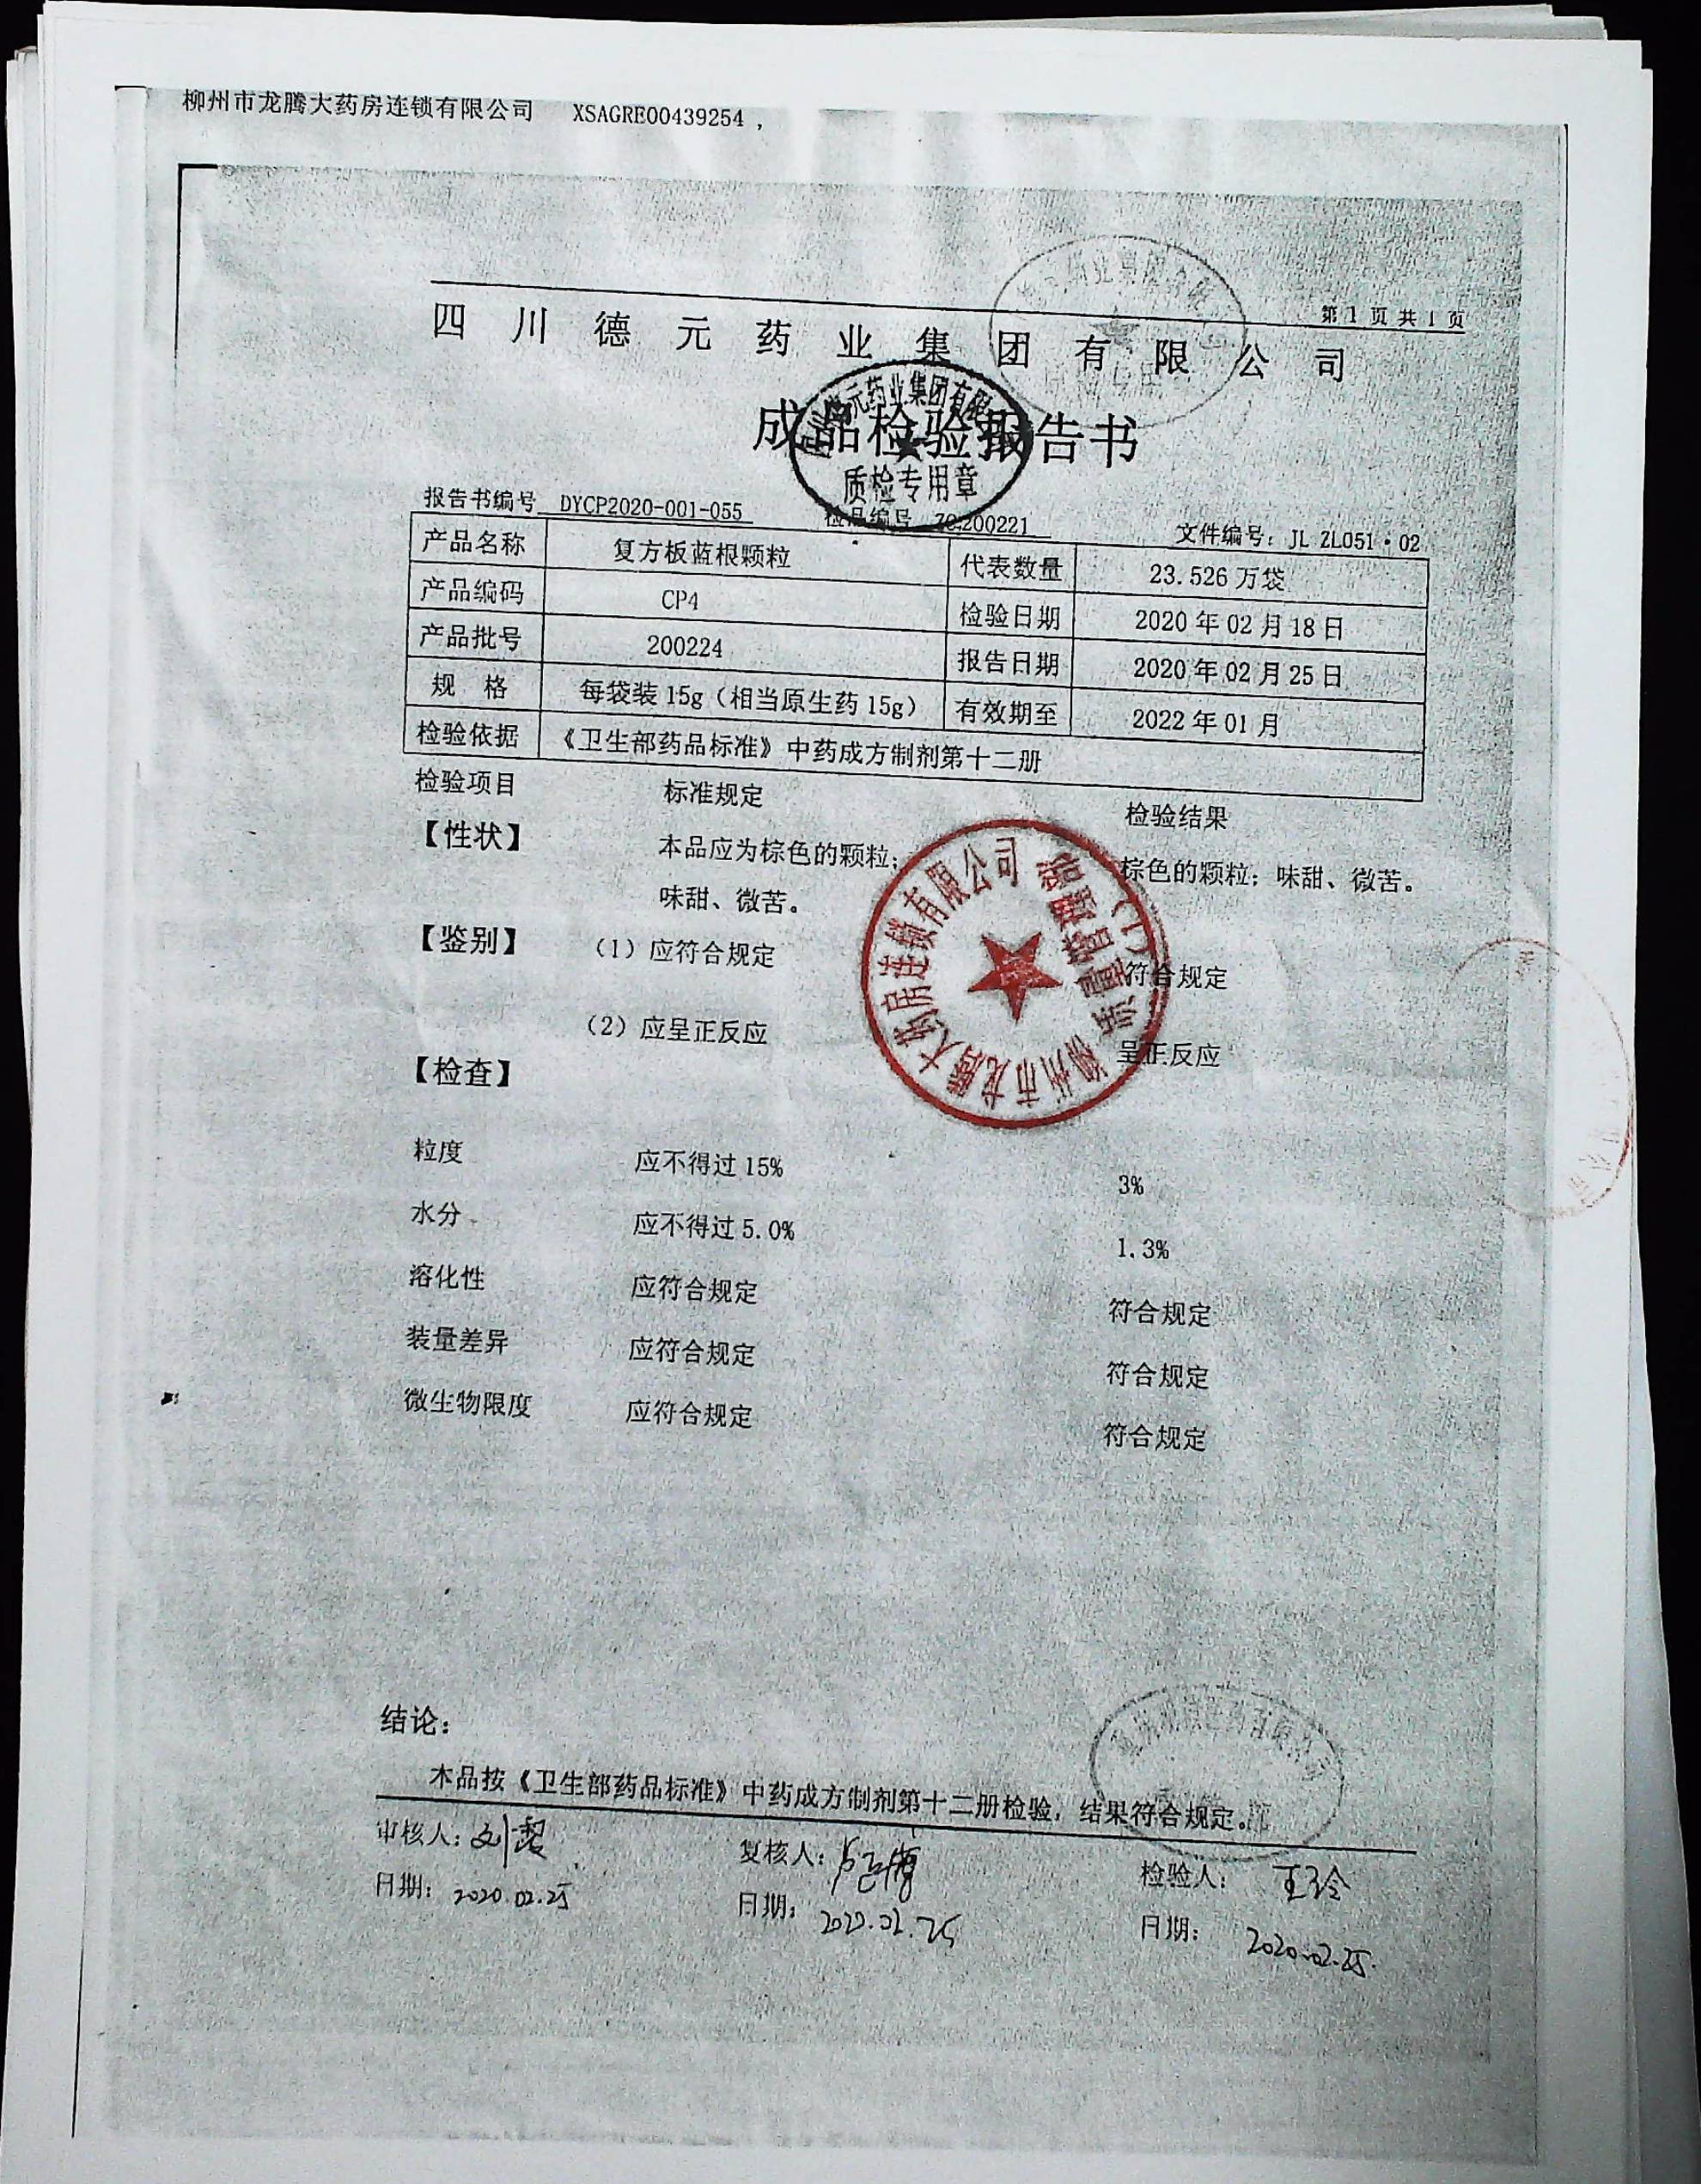 柳州市龙腾大药房连锁有限公司 XSAGRE00439254 ,
第1页 共1页
四川德元药业集团有限公司
成品检验报告书
元药业集团有限
质检专用章
报告书编号 DYCP2020-001-055 检品编号 200221 文件编号: JL ZL051·02
产品名称 复方板蓝根颗粒 代表数量 23.526 万袋
产品编码 CP4 检验日期 2020 年 02 月 18 日
产品批号 200224 报告日期 2020 年 02 月 25 日
规 格 每袋装 15g（相当原生药 15g） 有效期至 2022 年 01 月
检验依据 《卫生部药品标准》中药成方制剂第十二册
检验项目 标准规定 检验结果
【性状】 本品应为棕色的颗粒; 棕色的颗粒; 味甜、微苦。
味甜、微苦。
【鉴别】 （1）应符合规定 符合规定
（2）应呈正反应 呈正反应
柳州市龙腾大药房连锁有限公司
质量管理部
(1)
【检查】
粒度 应不得过 15% 3%
水分 应不得过 5.0% 1.3%
溶化性 应符合规定 符合规定
装量差异 应符合规定 符合规定
微生物限度 应符合规定 符合规定
结论:
本品按《卫生部药品标准》中药成方制剂第十二册检验, 结果符合规定。
审核人: 刘 复核人: 检验人: 王玲
日期: 2020.02.25 日期: 2020.02.25 日期: 2020.02.25